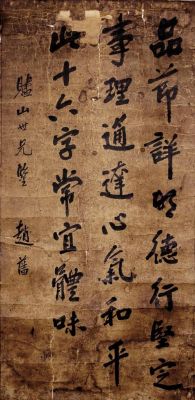 品節詳明德行堅定
事理通達心氣和平
此十六字常宜體味
臚山世兄鑒 趙舊